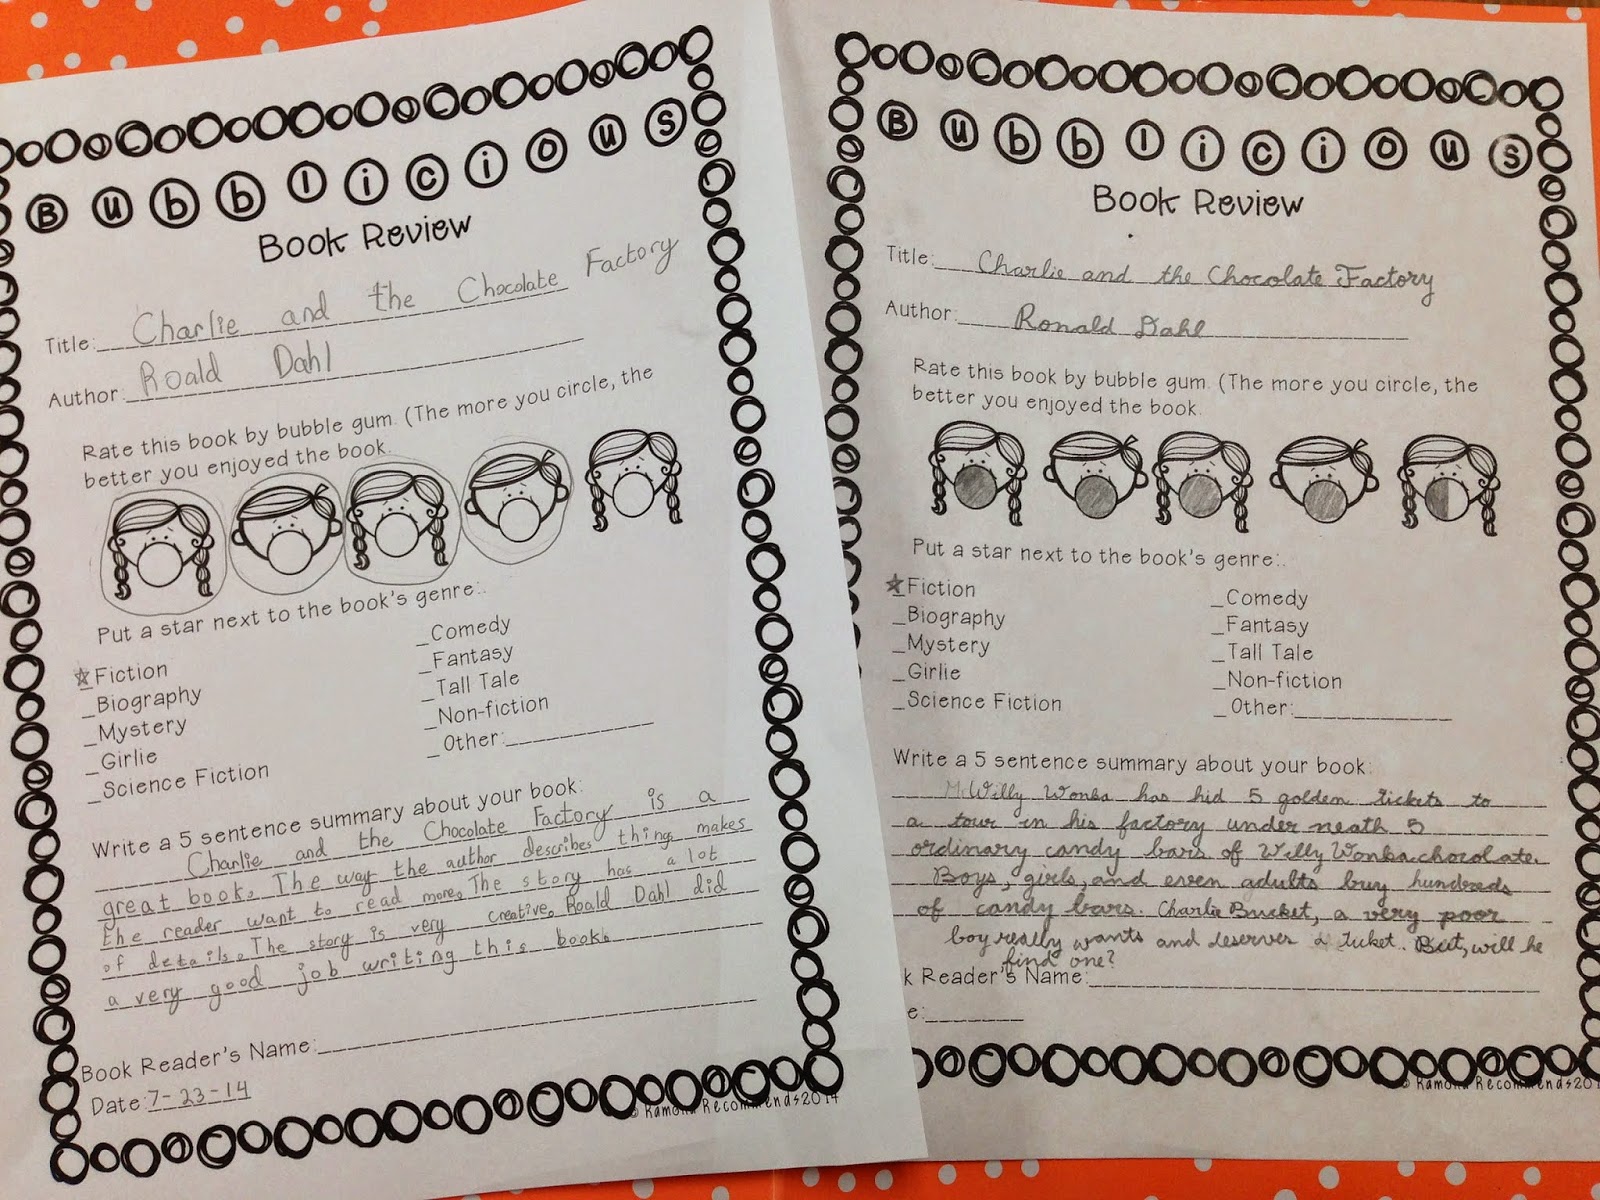 Bubblicious
Book Review
Title: Charlie and the Chocolate Factory
Author: Roald Dahl
Rate this book by bubble gum. (The more you circle, the
better you enjoyed the book.
Put a star next to the book's genre:.
☆Fiction
_Biography
_Mystery
_Girlie
_Science Fiction
_Comedy
_Fantasy
_Tall Tale
_Non-fiction
_Other:
Write a 5 sentence summary about your book:
Charlie and the Chocolate Factory is a
great book. The way the author describes thing makes
the reader want to read more. The story has a lot
of details. The story is very creative. Roald Dahl did
a very good job writing this book.
Book Reader's Name:
Date: 7-23-14
© Ramona Recommends2014
Bubblicious
Book Review
Title: Charlie and the Chocolate Factory
Author: Ronald Dahl
Rate this book by bubble gum. (The more you circle, the
better you enjoyed the book.
Put a star next to the book's genre:.
★Fiction
_Biography
_Mystery
_Girlie
_Science Fiction
_Comedy
_Fantasy
_Tall Tale
_Non-fiction
_Other:
Write a 5 sentence summary about your book:
Willy Wonka has hid 5 golden tickets to
a tour in his factory under neath 5
ordinary candy bars of Willy Wonka chocolate.
Boys, girls, and even adults buy hundreds
of candy bars. Charlie Bucket, a very poor
boy really wants and deserves a ticket. But, will he
find one?
k Reader's Name:
e:
© Ramona Recommends201